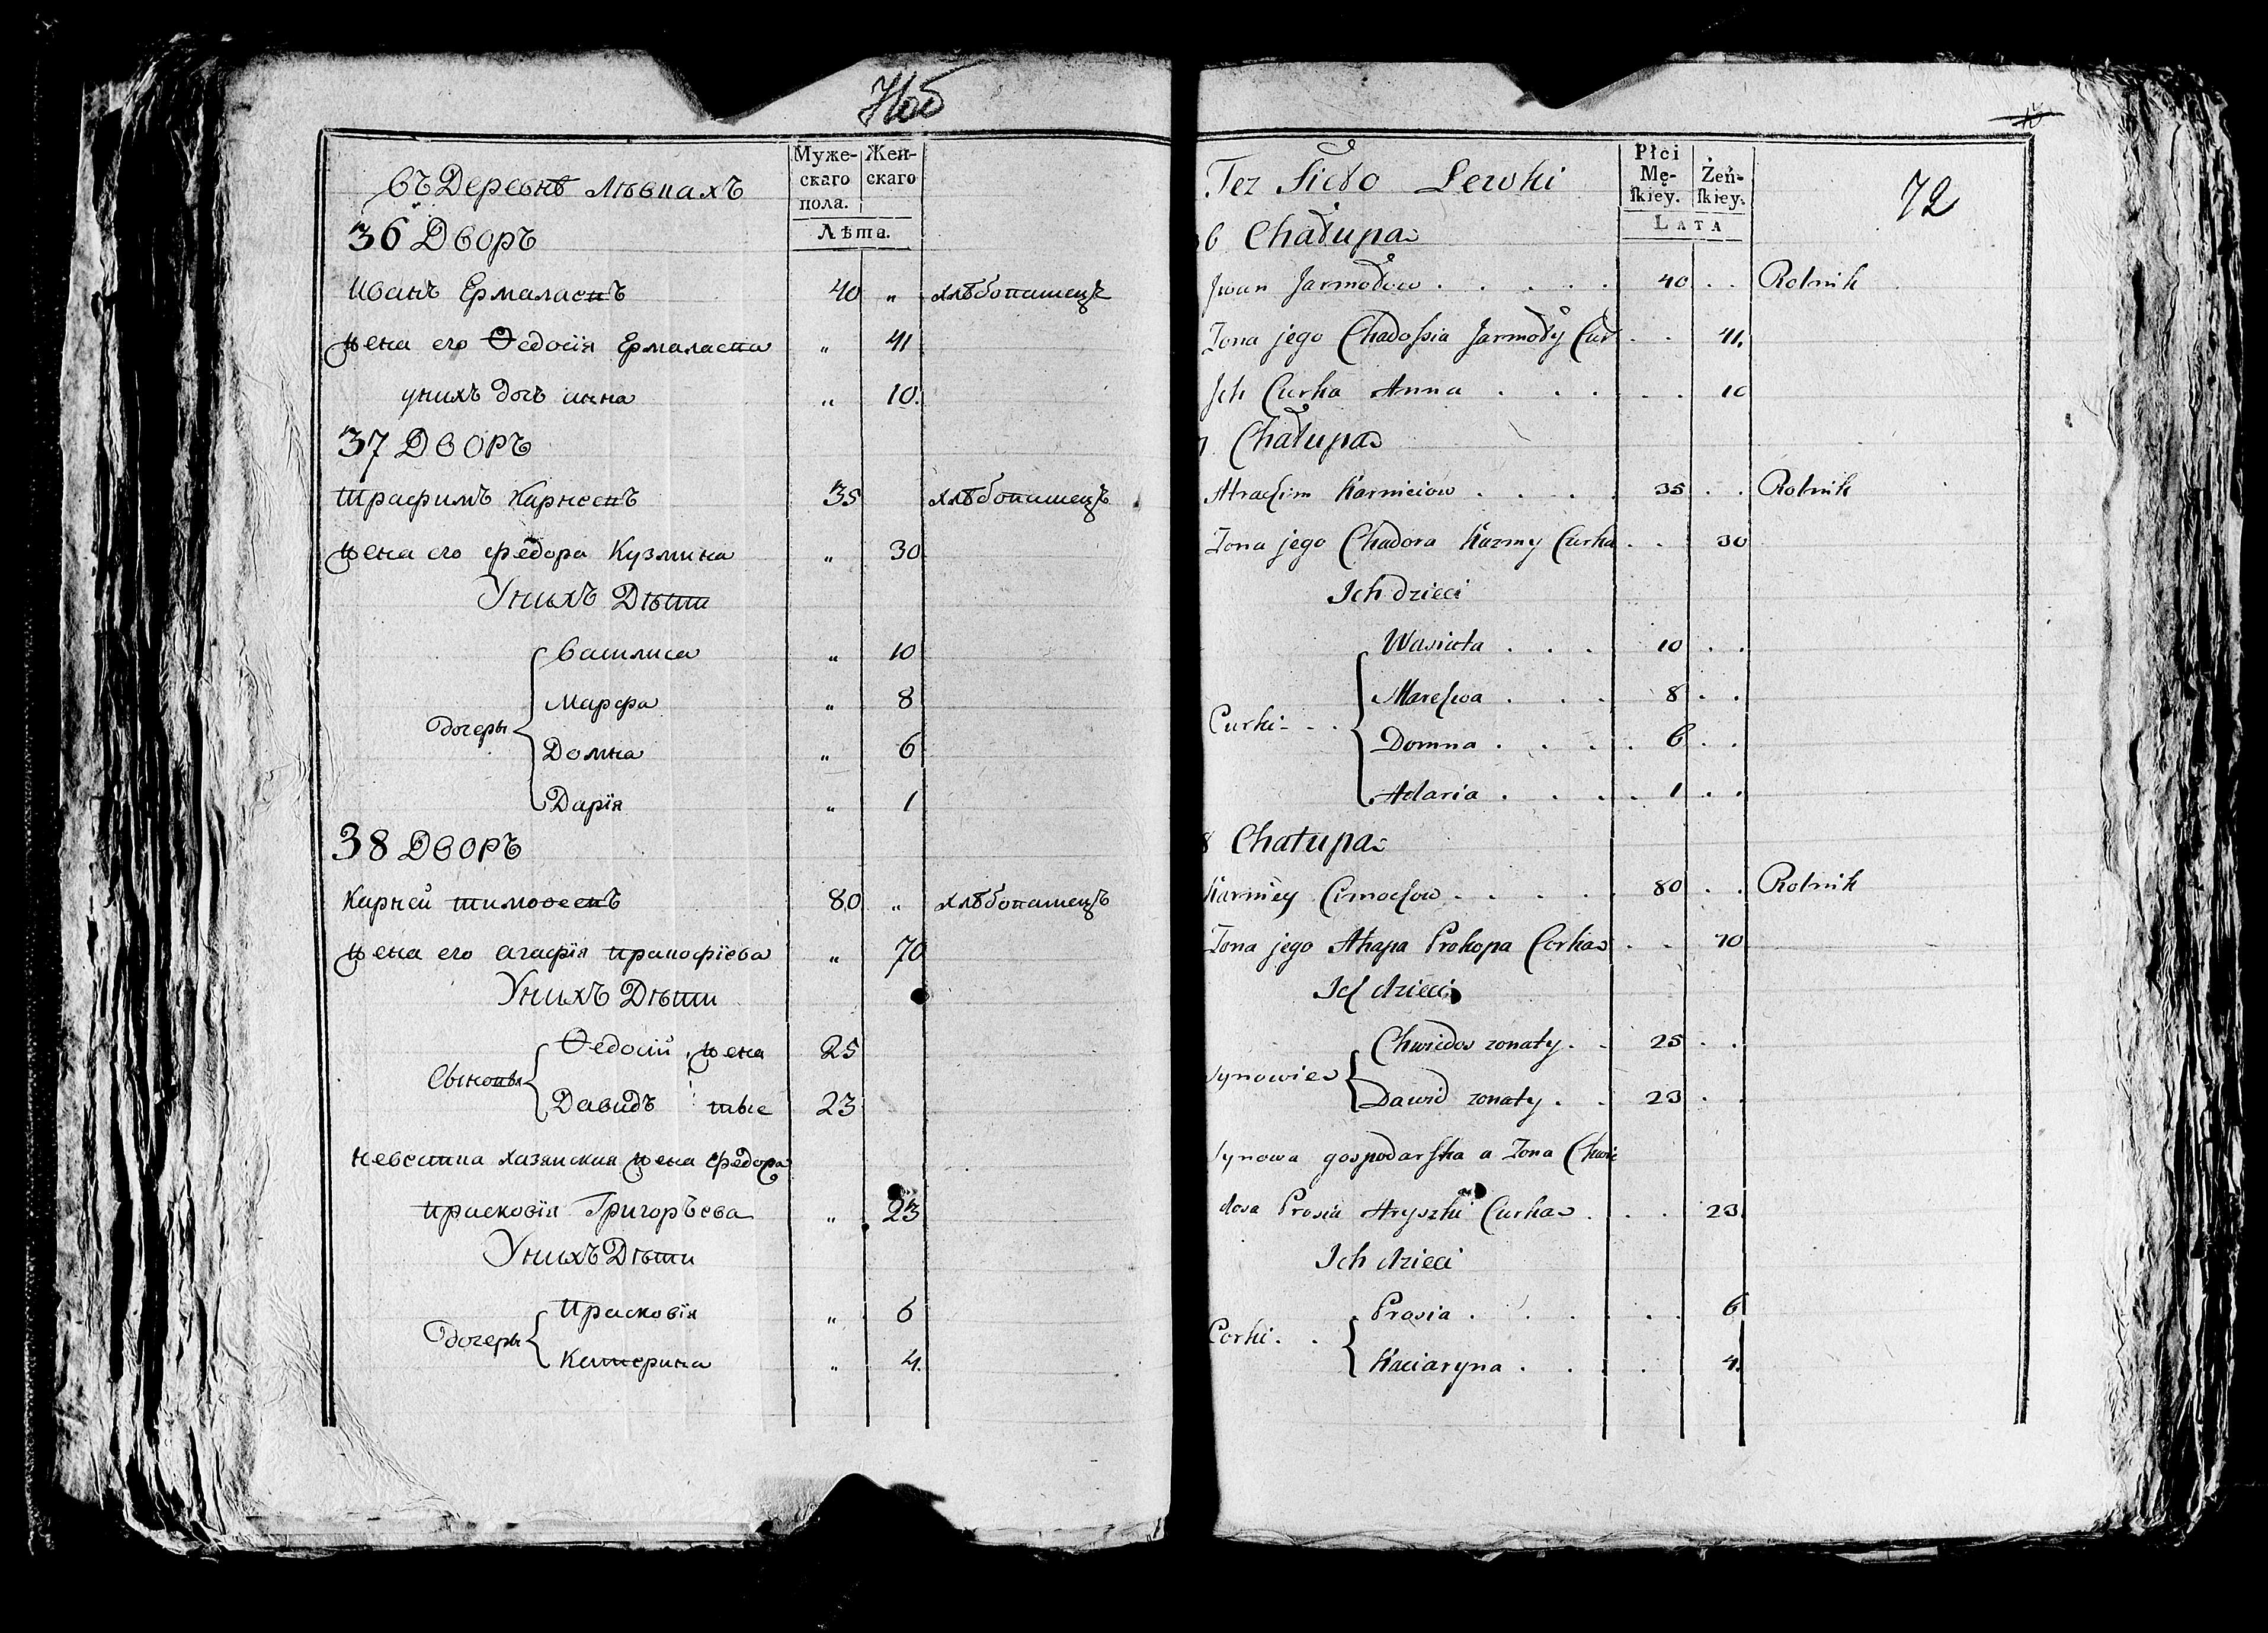 Муже-
скаго
пола.
Жен-
скаго
Лѣта.
въ Деревнѣ Лѣвкахъ
36 Дворъ
Иванъ Ермалаевъ 40 „ хлѣбопашецъ
жена его Ѳедосія Ермалаева „ 41
у нихъ дочь анна „ 10.
37 Дворъ
Трафимъ Карнеевъ 35 хлѣбопашецъ
жена его федора Кузмина „ 30
У нихъ Дѣти
дочеры
Василиса „ 10
Марфа „ 8
Домна „ 6
Дарія „ 1
38 Дворъ
Карней тимоѳеевъ 80 „ хлѣбопашецъ
жена его агафія пракофіева „ 70
У нихъ Дѣти
Сыновья
Ѳедосій жена 25
Давидъ тые 23
невестка хазяиская жена федора
прасковія Григорьева „ 23
У нихъ Дѣти
дочеры
Прасковія „ 6
Катерина „ 4.
Płci
Mę-
ſkiey.
Żeń-
ſkiey.
LATA
72
Tez Sioło Lewki
6 Chałupa
Jwan Jarmołow . . . . . 40 . . Rolnik
Zona jego Chadossia Jarmoły Cur . . 41.
Jch Curka Anna . . . . . 10
7 Chałupa
Atrachim Karnieiow . . . . 35 . . Rolnik
Zona jego Chadora Kuzmy Curka . . 30
Ich dzieci
Curki - . .
Wasiuta . . . 10 . .
Marchwa . . . 8 . .
Domna . . . . 6 . .
Adaria . . . . 1 . .
8 Chałupa
Karniey Cimochow . . . . . 80 . . Rolnik
Zona jego Ahapa Prokopa Corka . . 70
Ich dzieci
Synowie
Chwiedos zonaty . . 25 . .
Dawid zonaty . . 23 . .
Synowa gospodarska a Zona Chwie
dosa Prosia Hryszki Curka . . . 23.
Ich dzieci
Corki . .
Prosia . . . . . . 6
Kaciaryna . . . . 4.